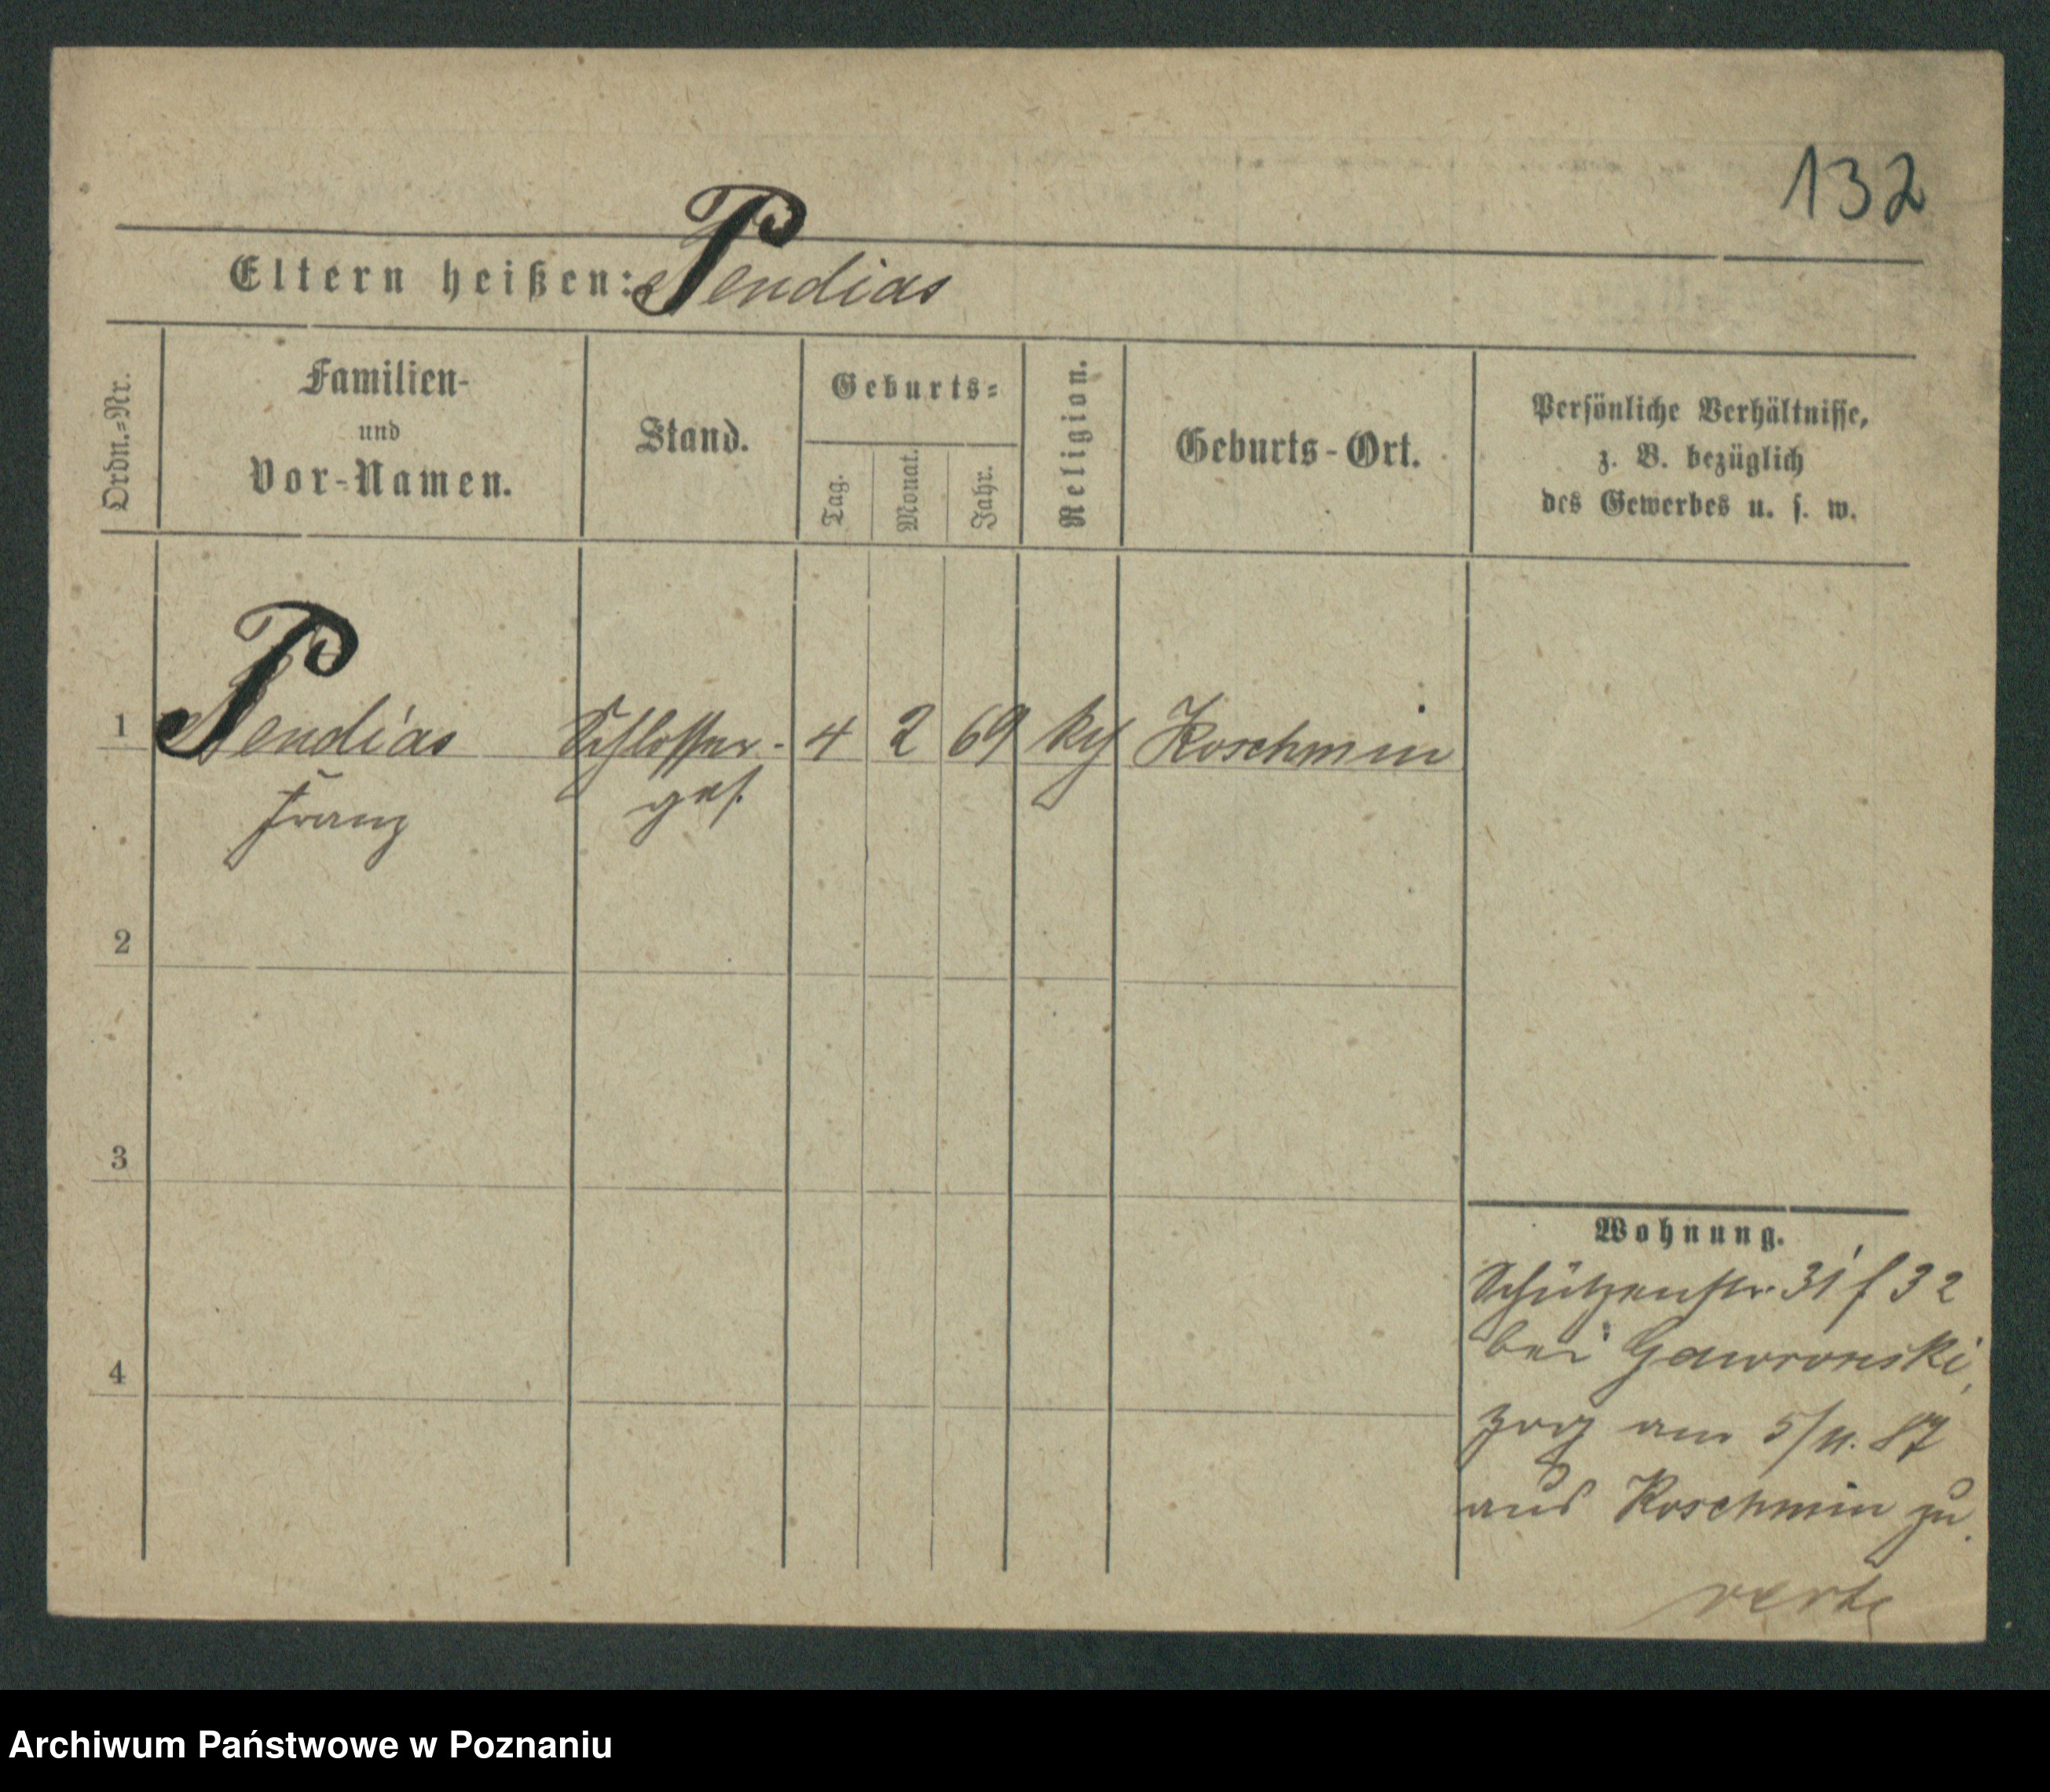 132
Eltern heißen: Pendias
Ordn.-Nr.
Familien-
und
Vor-Namen.
Stand.
Geburts-
Tag.
Monat.
Jahr.
Religion.
Geburts-Ort.
Persönliche Verhältnisse,
z. B. bezüglich
des Gewerbes u. s. w.
1 Pendias Schlosser- 4 2 69 kth Koschmin
Franz ges.
2
3
4
Wohnung.
Schützenstr. 31 / 32
bei Gaworonski,
zog am 5/11. 87
aus Koschmin zu.
verte
Archiwum Państwowe w Poznaniu